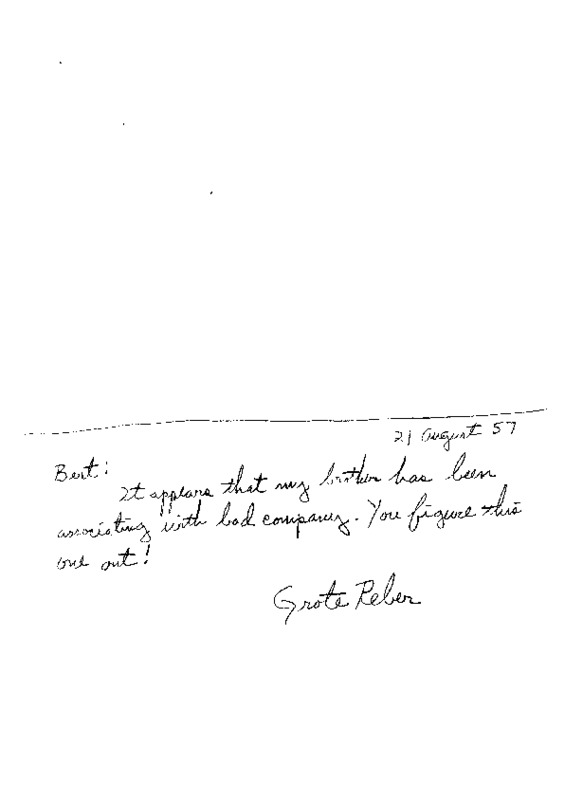 21 August 57
Bert:
It appears that my brother has been
associating with bad company. You figure this
one out!
Grote Reber